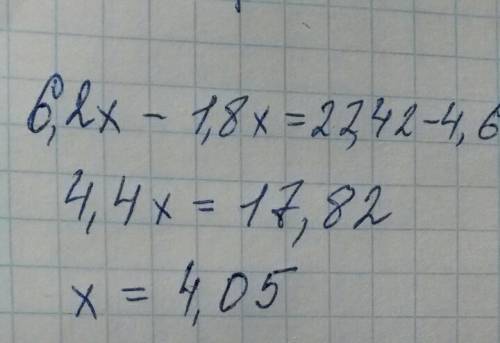 6,2x - 1,8x = 22,42 - 4,6
4,4x = 17,82
x = 4,05